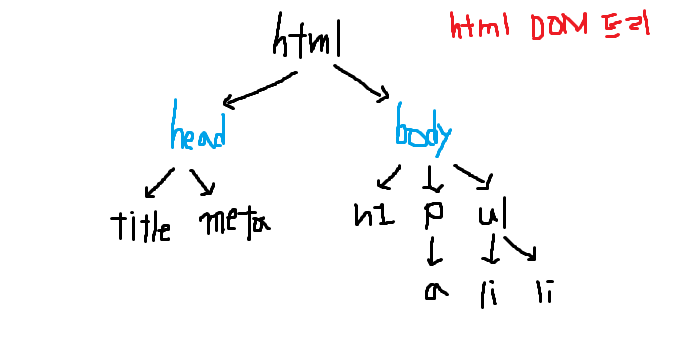 html DOM 트리
html
head body
title meta h1 p ul
a li li